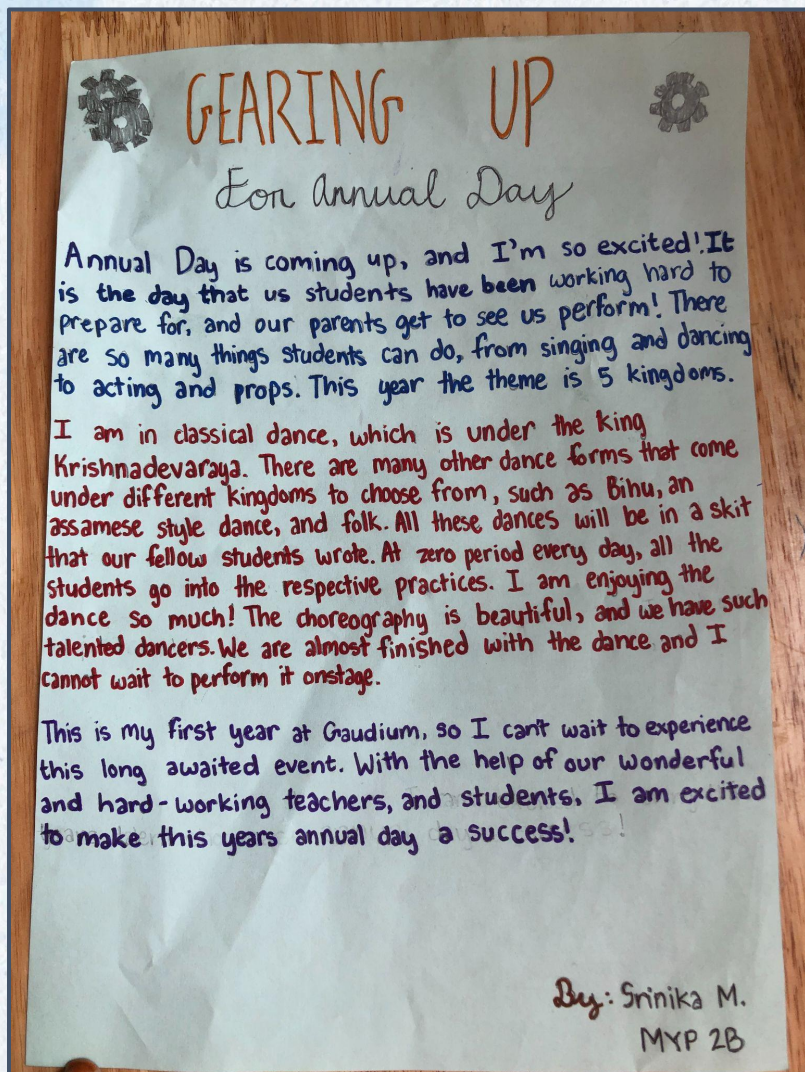 GEARING UP
For Annual Day
Annual Day is coming up, and I'm so excited! It
is the day that us students have been working hard to
prepare for, and our parents get to see us perform! There
are so many things students can do, from singing and dancing
to acting and props. This year the theme is 5 kingdoms.
I am in classical dance, which is under the king
Krishnadevaraya. There are many other dance forms that come
under different kingdoms to choose from, such as Bihu, an
assamese style dance, and folk. All these dances will be in a skit
that our fellow students wrote. At zero period every day, all the
students go into the respective practices. I am enjoying the
dance so much! The choreography is beautiful, and we have such
talented dancers. We are almost finished with the dance and I
cannot wait to perform it onstage.
This is my first year at Gaudium, so I can't wait to experience
this long awaited event. With the help of our wonderful
and hard-working teachers, and students, I am excited
to make this years annual day a success!
By: Srinika M.
MYP 2B